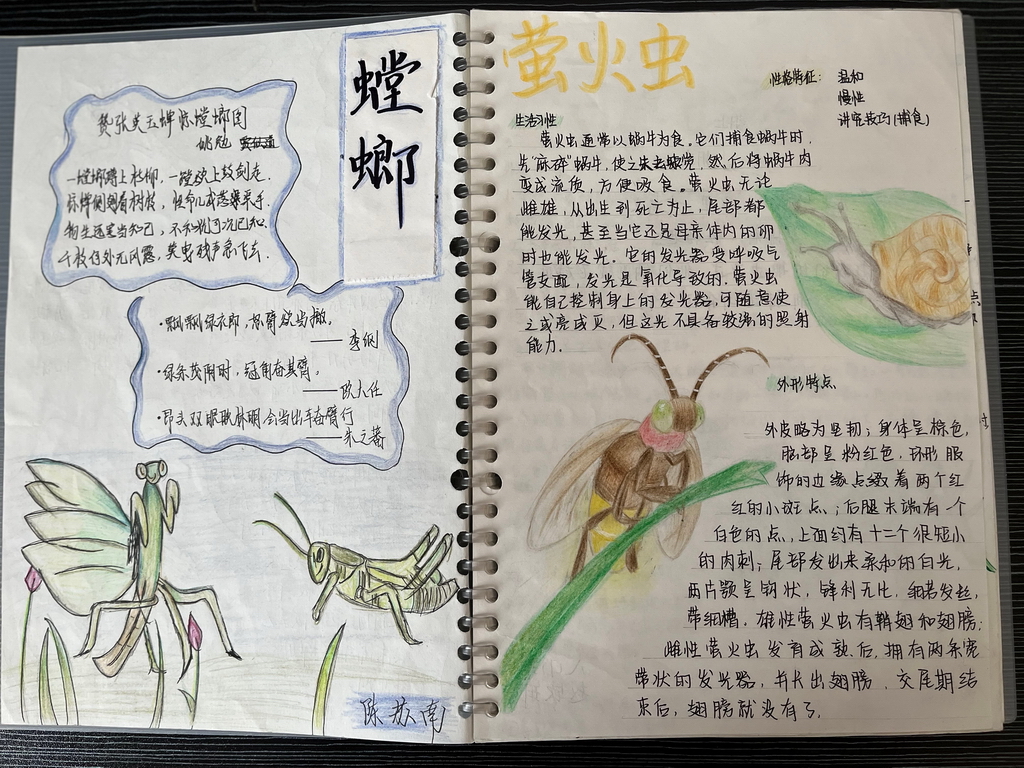 螳
螂
赞张芙玉蝉惊螳螂图
姚勉
一螳螂蹲上枝柳,一螳欲上故剑走.
惊蝉侧
物生逐
千枝自外无风露,
飘飘绿衣郎,怒臂欲当撤,
——李纲
绿条炎阴时,冠角奋其臂,
昂头双眼耿林明,会当出手奋臂行
——朱之蕃
陈苏南
萤火虫
性格特征: 温和
慢性
讲究技巧(捕食)
生活习性
萤火虫通常以蜗牛为食.它们捕食蜗牛时,
先“麻碎”蜗牛,使之失去知觉,然后将蜗牛肉
变成流质,方便吸食。萤火虫无论
雌雄,从出生到死亡为止,尾部都
能发光,甚至当它还是母亲体内的卵
时也能发光.它的发光器受呼吸气
管支配,发光是氧化导致的.萤火虫
能自己控制身上的发光器,可随意使
之或亮或灭,但这光不具备较强的照射
能力.
外形特点
外皮略为坚韧;身体呈棕色,
胸部呈粉红色,环形服
饰的边缘点缀着两个红
红的小斑点,;后腿末端有一个
白色的点,上面约有十二个很短小
的肉刺;尾部发出来柔和的白光,
两片颚呈钩状,锋利无比,细若发丝,
带细槽.雄性萤火虫有鞘翅和翅膀;
雌性萤火虫发育成熟后,拥有两条宽
带状的发光器,并长出翅膀,交尾期结
束后,翅膀就没有了.